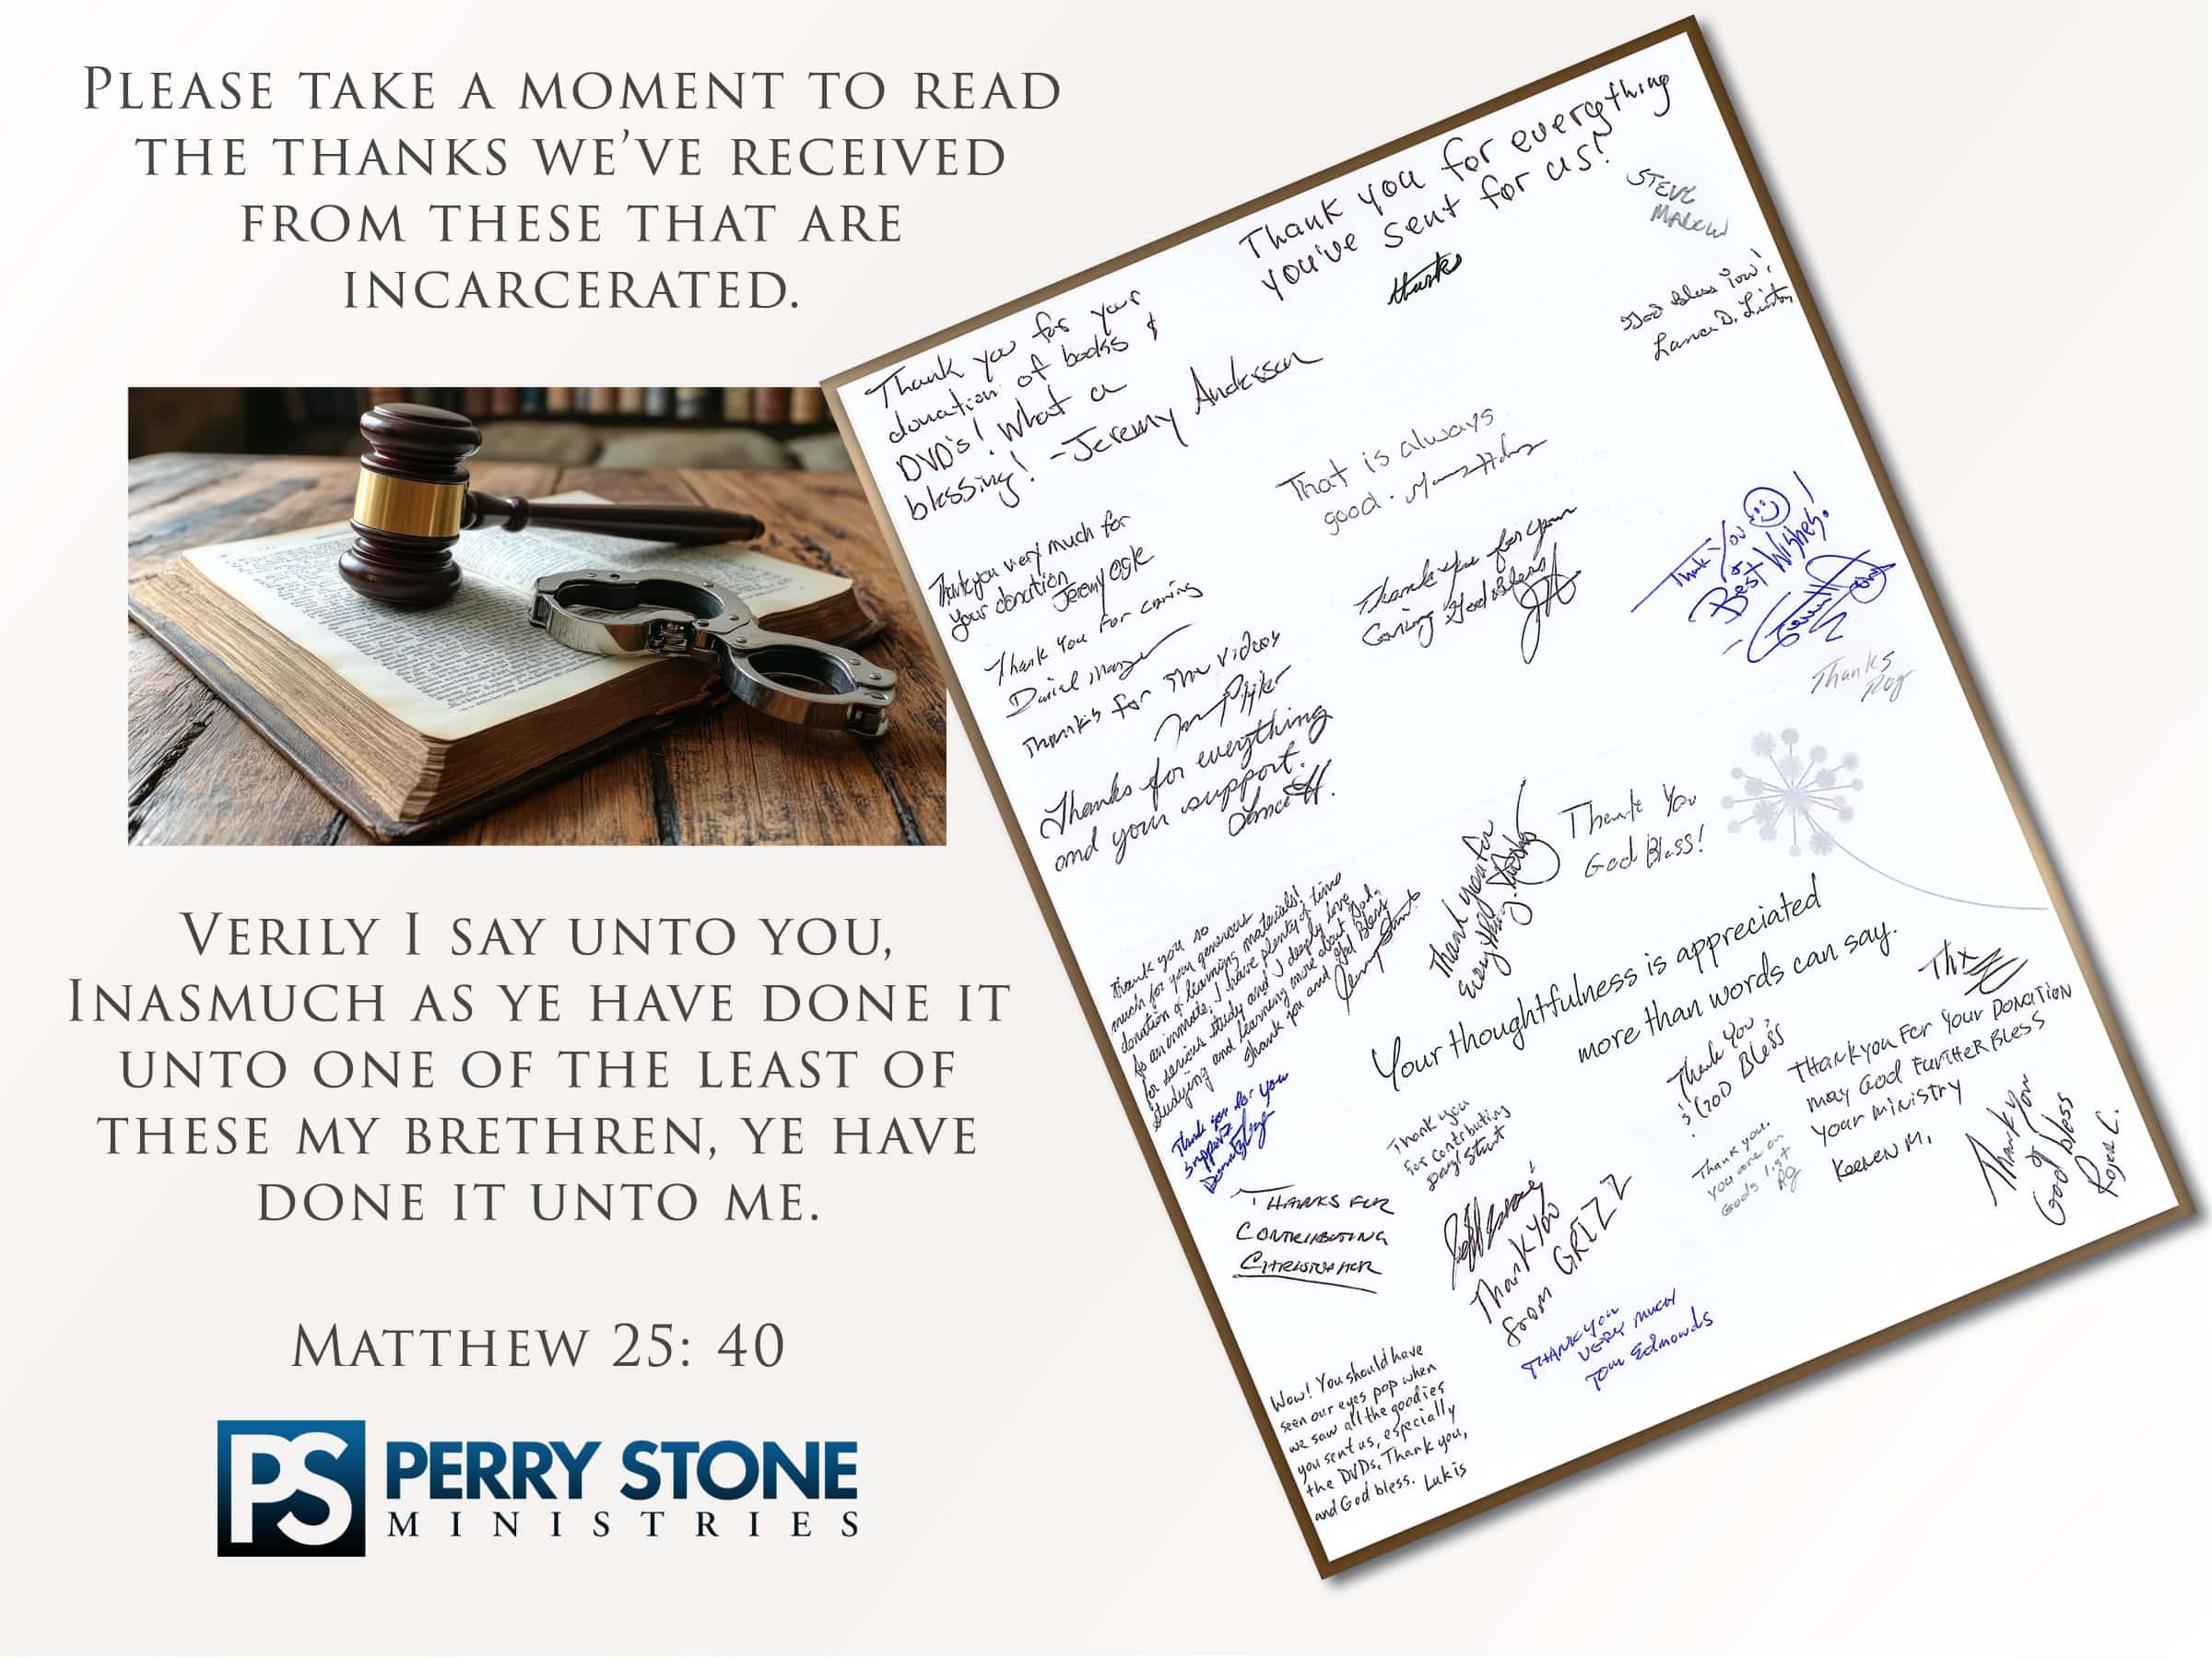 PLEASE TAKE A MOMENT TO READ
THE THANKS WE’VE RECEIVED
FROM THESE THAT ARE
INCARCERATED.
VERILY I SAY UNTO YOU,
INASMUCH AS YE HAVE DONE IT
UNTO ONE OF THE LEAST OF
THESE MY BRETHREN, YE HAVE
DONE IT UNTO ME.
MATTHEW 25: 40
PS
PERRY STONE
MINISTRIES
Thank you for everything
you've sent for us!
thanks
STEVE
God Bless You!
Thank you for your
donation of books &
DVD's! What a
blessing! -Jeremy Anderson
That is always
good.
Thank you very much for
your donation
Jeremy Ogle
Thank You For caring
Daniel
Thank you for your
Caring God Bless
Thank You
&
Best Wishes!
Thanks
Rog
Thanks for The videos
Thanks for everything
and your support.
Lance H.
Thank you for
everything
Thank You
God Bless!
Thank you so
much for your generous
donation of learning materials!
As an inmate, I have plenty of time
for serious study and I deeply love
studying and learning more about God.
Thank you and God Bless
Your thoughtfulness is appreciated
more than words can say.
Thx
Thank you for your
support
Thank you
for contributing
Daryl Stout
Thank You,
& GOD Bless
Thank you For Your Donation
may God FurtHeR Bless
your ministry
Keenen M.
Thank you.
you are on
Gods list
AG
Thank you
God bless
Roger C.
THANKS FOR
CONTRIBUTING
CHRISTOPHER
Thank you
from GRIZZ
THANK YOU
VERY MUCH
Tom Edmonds
Wow! You should have
seen our eyes pop when
we saw all the goodies
you sent us, especially
the DVDs. Thank you,
and God bless. Lukis